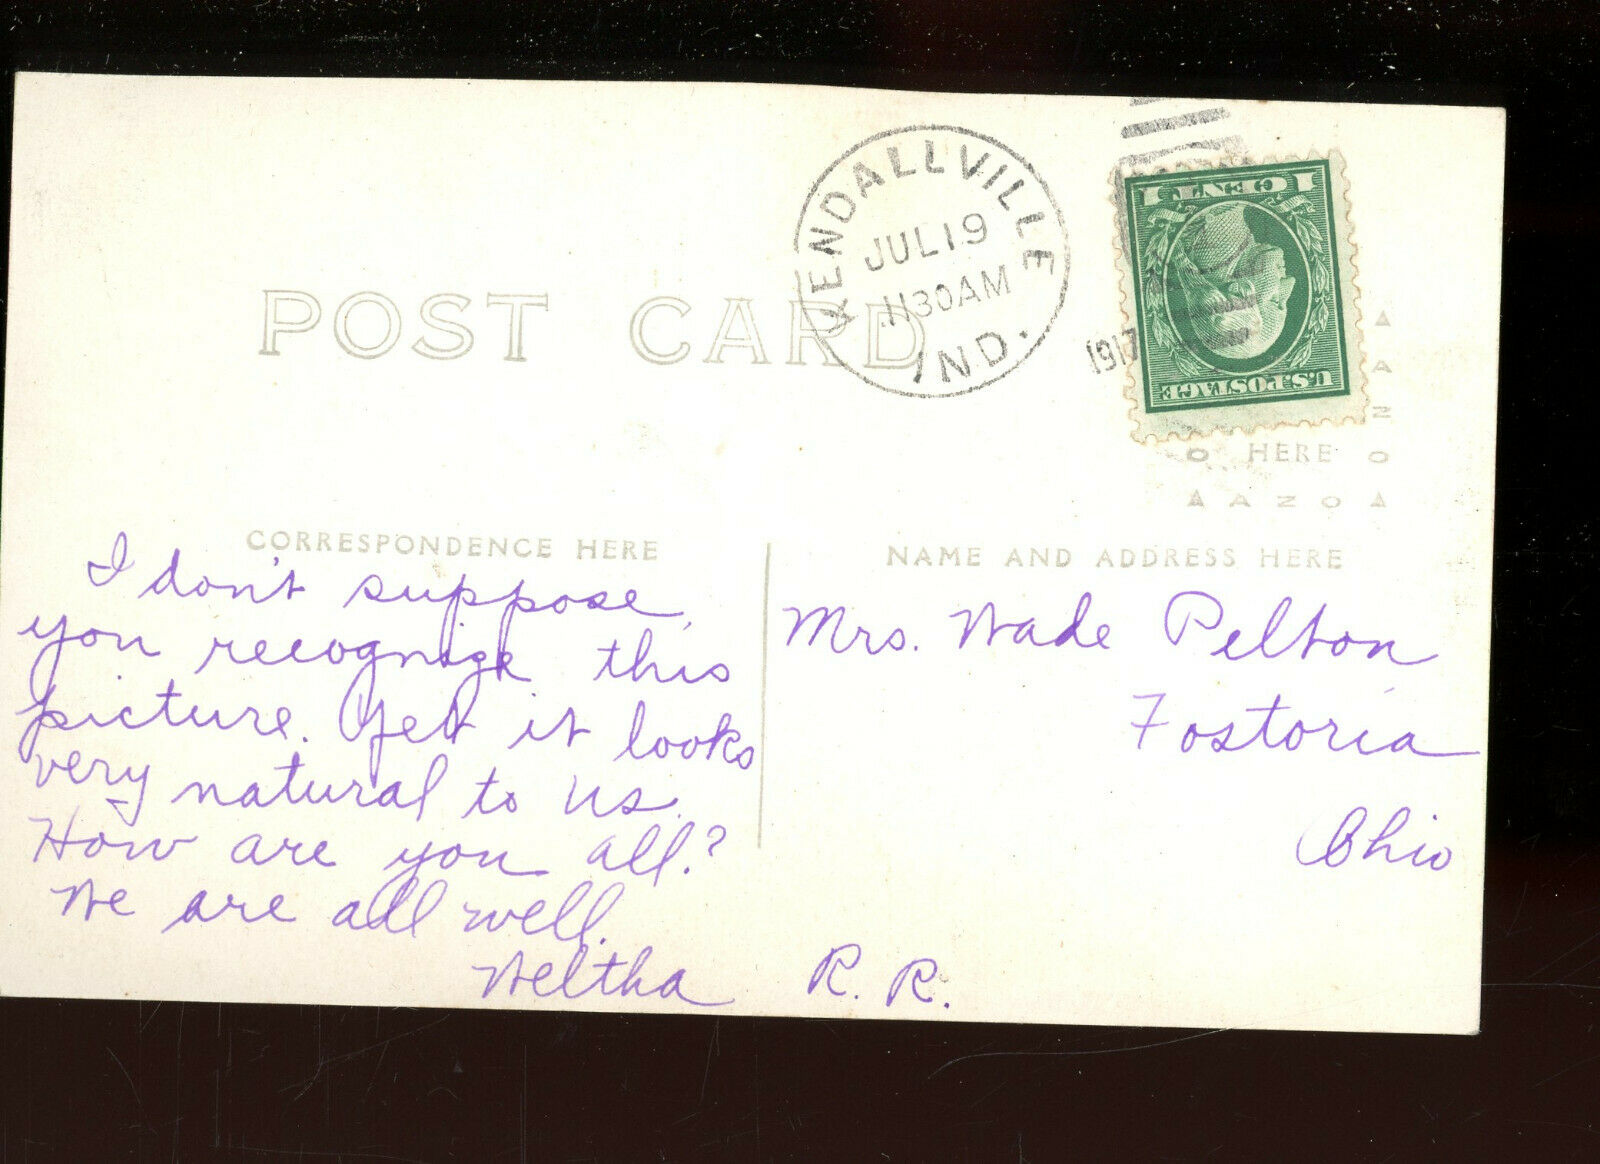 KENDALLVILLE
JUL 19
1130AM
IND.
1917
1 CENT 1
U.S. POSTAGE
POST CARD
HERE
AZO
AZO
CORRESPONDENCE HERE
NAME AND ADDRESS HERE
I don't suppose
you recognize this
picture. Yet it looks
very natural to us.
How are you all?
We are all well.
Weltha
Mrs. Wade Pelton
Fostoria
Ohio
R. R.